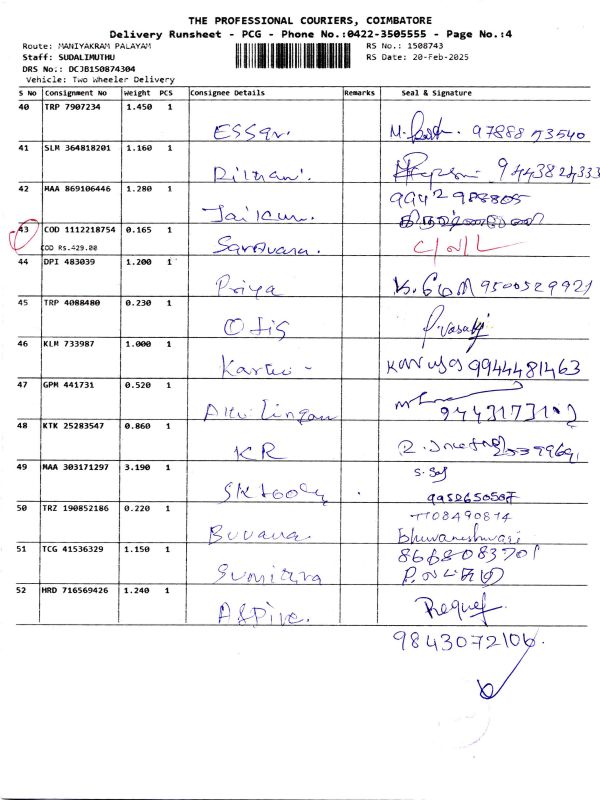 THE PROFESSIONAL COURIERS, COIMBATORE
Delivery Runsheet - PCG - Phone No.:0422-3505555 - Page No.:4
Route: MANIYAKRAM PALAYAM RS No.: 1508743
Staff: SUDALIMUTHU RS Date: 20-Feb-2025
DRS No.: DCJB150874304
Vehicle: Two Wheeler Delivery
S No Consignment No Weight PCS Consignee Details Remarks Seal & Signature
40 TRP 7907234 1.450 1
ESSar. 97888 73540
41 SLM 364818201 1.160 1
42 MAA 869106446 1.280 1 9942 988805
Jaikum.
43 COD 1112218754 0.165 1
COD Rs.429.00 Saravana. C/N/L
44 DPI 483039 1.200 1
Priya 9500529921
45 TRP 4088480 0.230 1
Otis P. Vasuki
46 KLM 733987 1.000 1
9944481463
47 GPM 441731 0.520 1
48 KTK 25283547 0.860 1
KR
49 MAA 303171297 3.190 1
50 TRZ 190852186 0.220 1 7708490814
Buvana bhuvaneshwari
51 TCG 41536329 1.150 1 8668083701
Sumithra
52 HRD 716569426 1.240 1
Aspire.
9843072106.